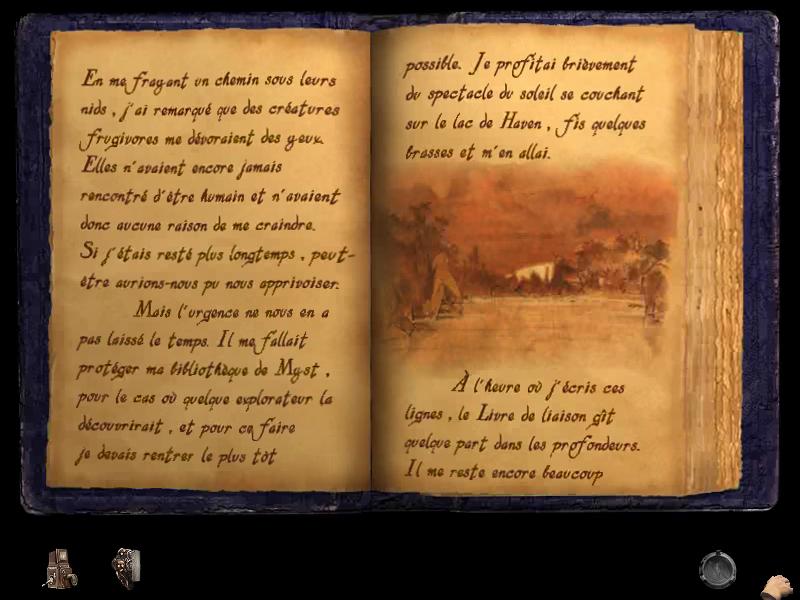 En me frayant un chemin sous leurs
nids, j'ai remarqué que des créatures
frugivores me dévoraient des yeux.
Elles n'avaient encore jamais
rencontré d'être humain et n'avaient
donc aucune raison de me craindre.
Si j'étais resté plus longtemps, peut-
être aurions-nous pu nous apprivoiser.
Mais l'urgence ne nous en a
pas laissé le temps. Il me fallait
protéger ma bibliothèque de Myst,
pour le cas où quelque explorateur la
découvrirait, et pour ce faire
je devais rentrer le plus tôt
possible. Je profitai brièvement
du spectacle du soleil se couchant
sur le lac de Haven, fis quelques
brasses et m'en allai.
À l'heure où j'écris ces
lignes, le Livre de liaison gît
quelque part dans les profondeurs.
Il me reste encore beaucoup